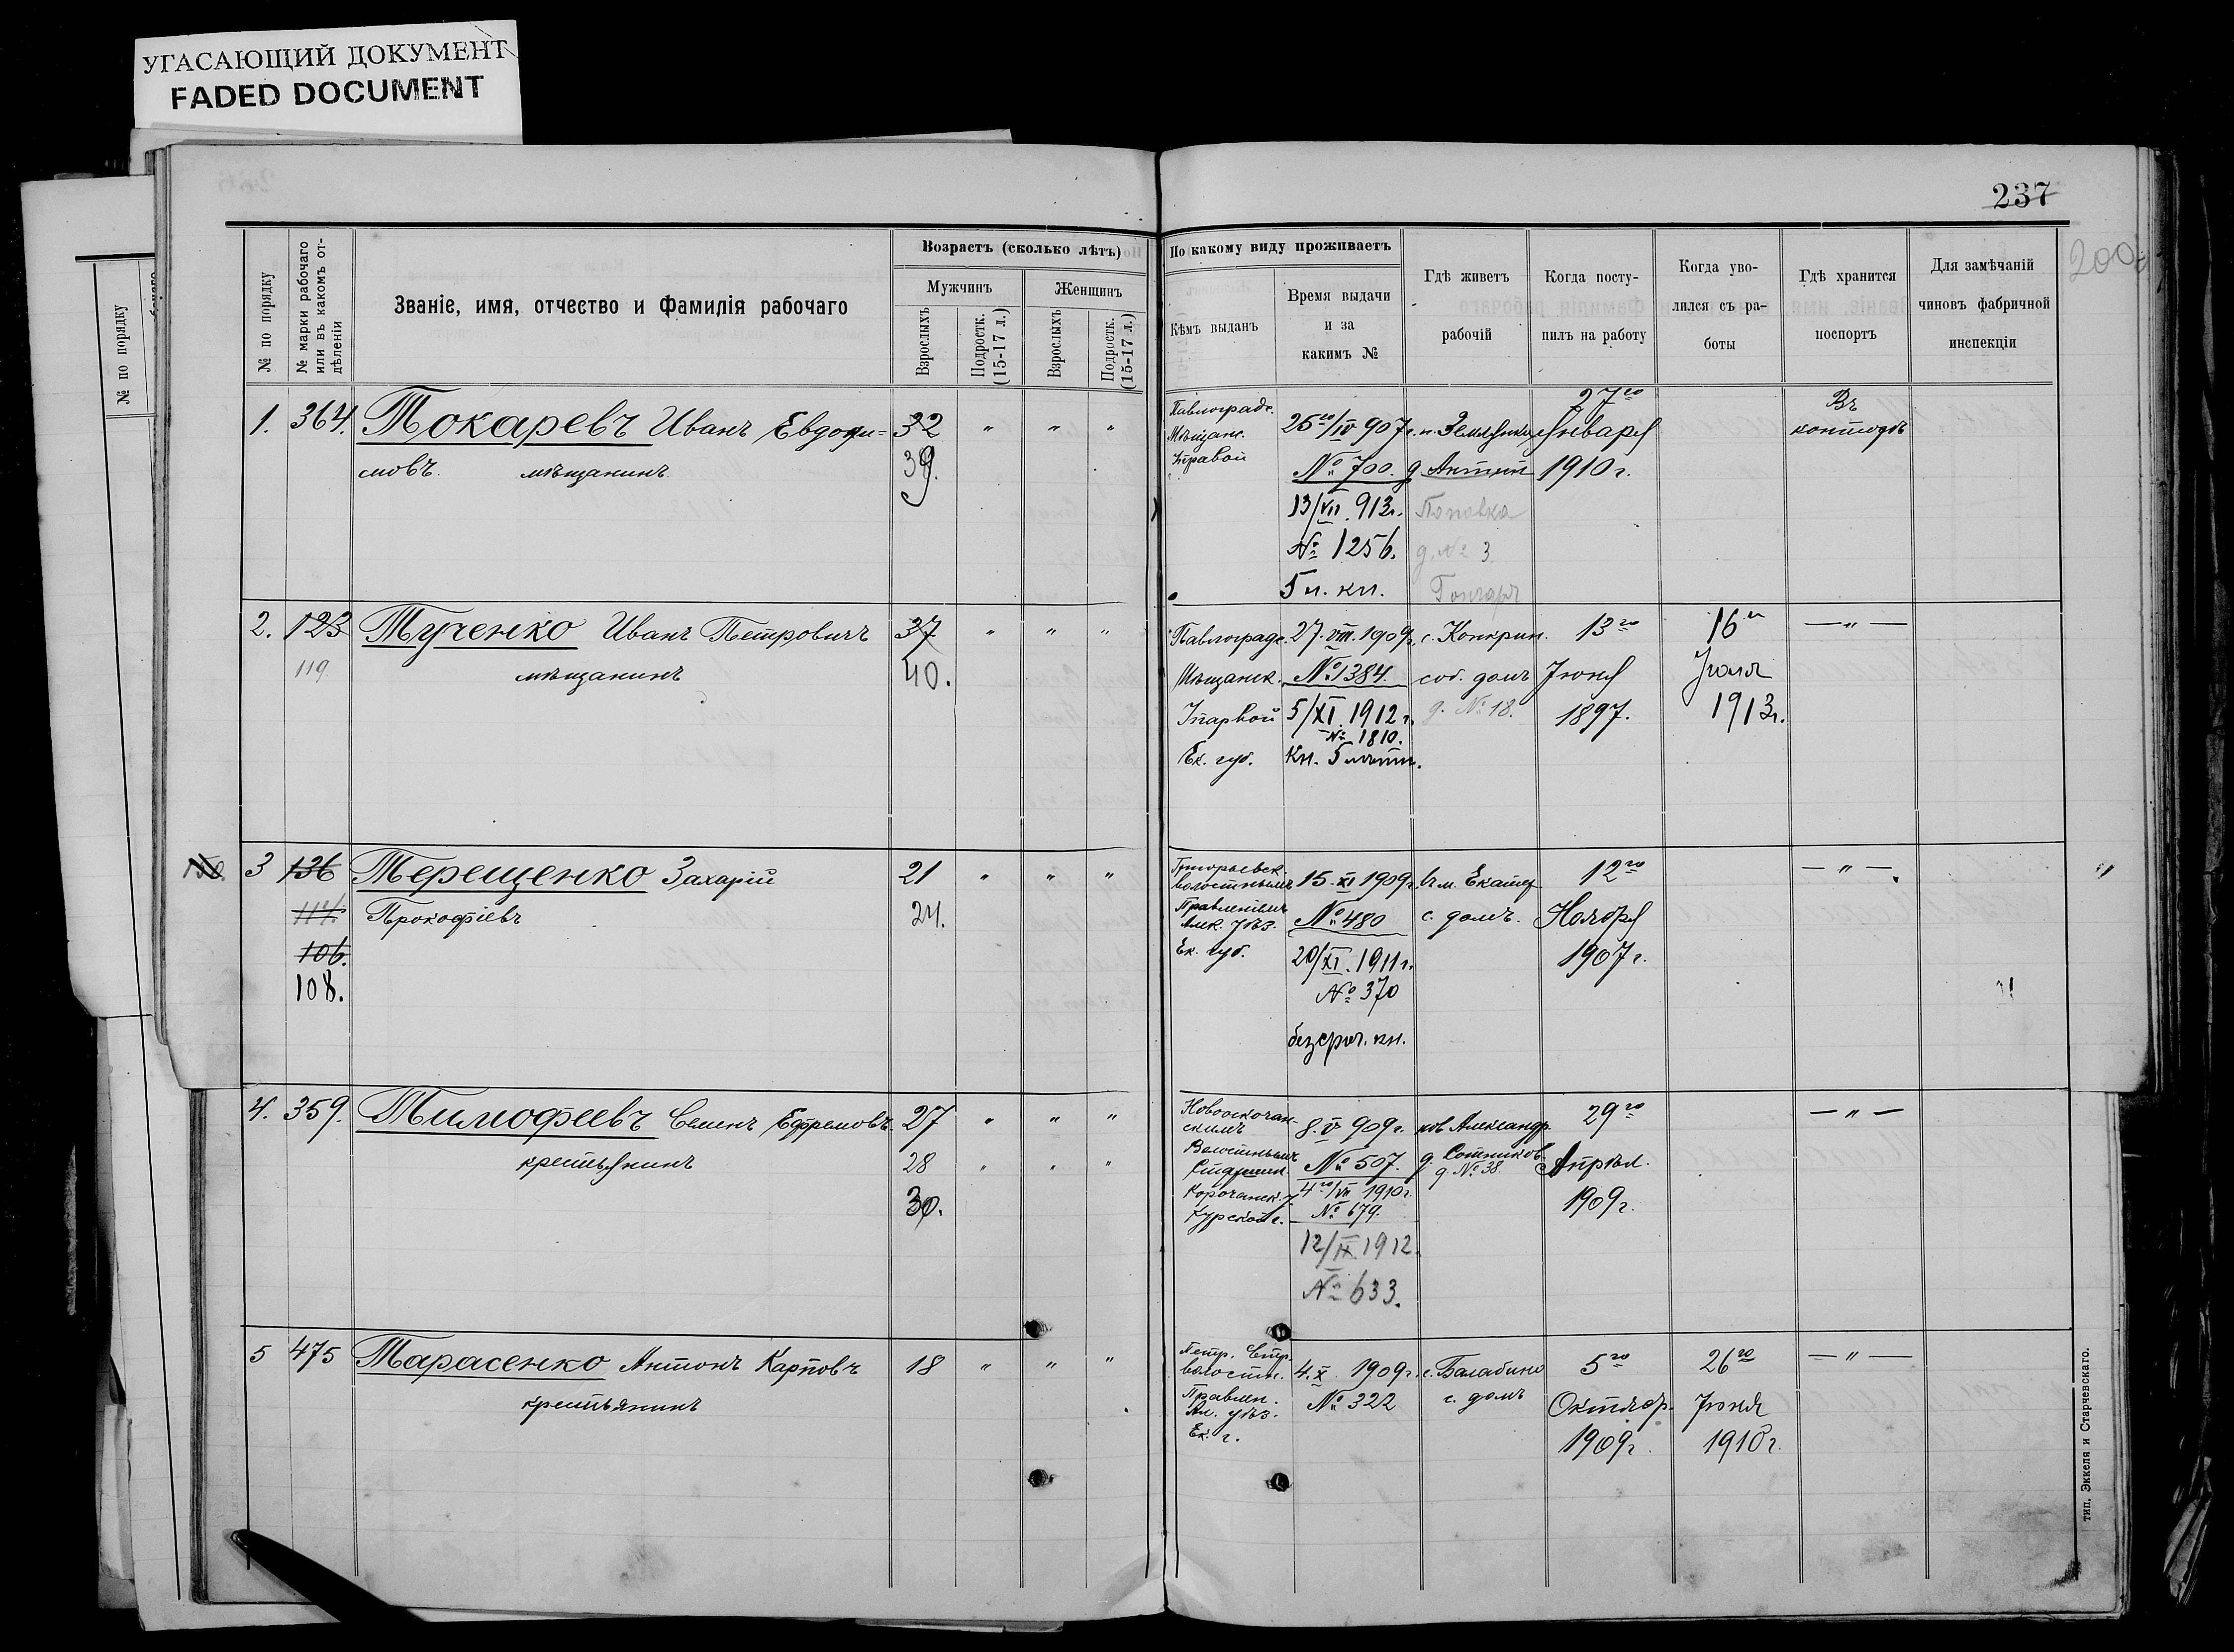 УГАСАЮЩИЙ ДОКУМЕНТ
FADED DOCUMENT
237
200
№ по порядку
№ по порядку
№ марки рабочаго
или въ какомъ от-
дѣленіи
Званіе, имя, отчество и Фамилія рабочаго
Возрастъ (сколько лѣтъ)
Мужчинъ
Женщинъ
Взрослыхъ
Подростк.
(15-17 л.)
Взрослыхъ
Подростк.
(15-17 л.)
По какому виду проживаетъ
Кѣмъ выданъ
Время выдачи
и за
какимъ №
Гдѣ живетъ
рабочій
Когда посту-
пилъ на работу
Когда уво-
лился съ ра-
боты
Гдѣ хранится
поспортъ
Для замѣчаній
чиновъ фабричной
инспекціи
1. 364. Токаревъ Иванъ Евдоки=
мовъ. мѣщанинъ
32 " " "
39.
Павлоградс.
Мѣщанс.
Управой
25го/IV 907г.
№ 700.
13/VII. 913г.
№ 1256.
5 л. кн.
Поповка
д. № 3
Гончаръ
27го
Января
1910 г.
Въ
конторѣ
2. 123 Тученко Иванъ Петровичъ 37 " " "
119 мѣщанинъ 40.
Павлоградс.
Мѣщанск.
Управой
Ек. губ.
27. VIII. 1909г.
№ 1384.
5/XI. 1912 г.
№ 1810.
Кн. 5 лѣтн.
с. Конкрин.
соб. домъ
д. № 18.
13го
Іюня
1897.
16го
Іюля
1913г.
— " —
150. 3 136 Терещенко Захарій 21 " " "
114. Прокофіевъ 24.
106.
108.
волостнымъ
Правленіемъ
Алек. уѣз.
Ек. губ.
15. XI 1909г.
№ 480
20/XI. 1911 г.
№ 370
безсроч. кн.
въ м. Екатер
с. домъ.
12го
Ноября
1907 г.
— " —
4. 359. Тимофеевъ Семенъ Ефремовъ. 27 " " "
крестьянинъ 28 " " "
30.
Волостнымъ
Корочанск. у
Курской г.
8. V 909 г.
№ 507.
4го/VII 1910 г.
№ 679.
12/IX. 1912.
№ 633.
ков Александр.
д. Сотников.
д. № 38.
29го
Апрѣл.
1909 г.
— " —
5 475 Тарасенко Антонъ Карповъ 18 " " "
крестьянинъ
Петр. Стр.
волостн.
Правлен.
Ал. уѣз.
Ек. г.
4. X 1909 г.
№ 322
с. Балабино
с. домъ
5го
Октябр.
1909 г.
26го
Іюня
1910 г.
— " —
тип. Эккеля и Старчевскаго.